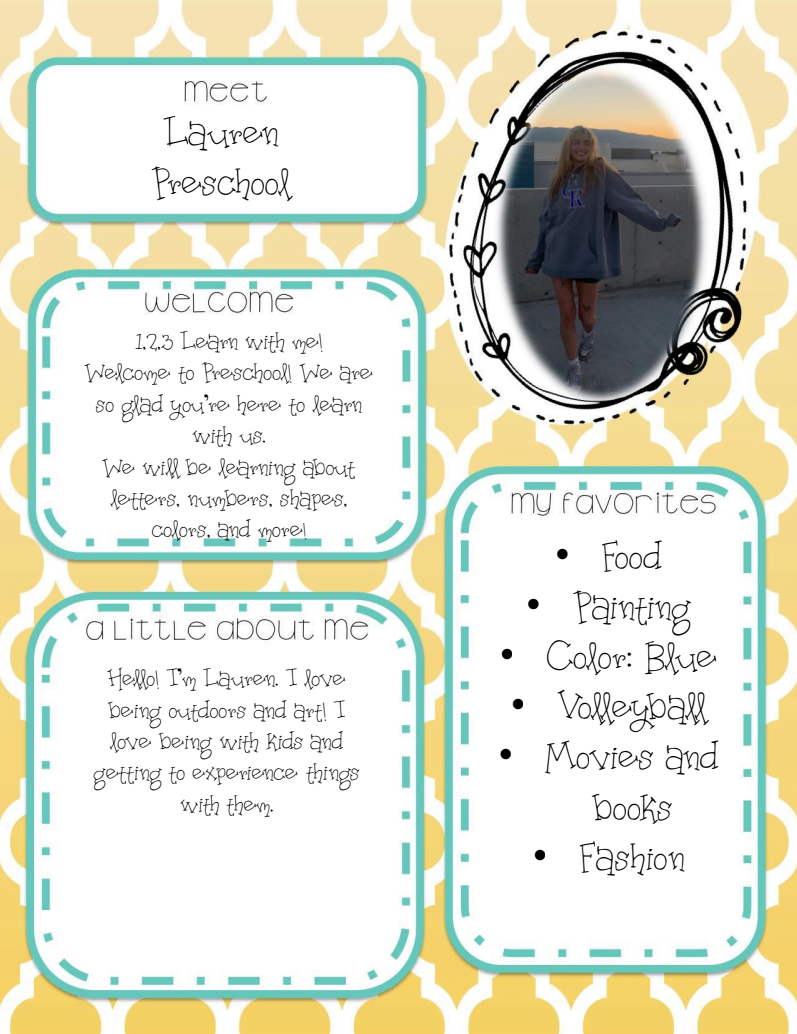 meet
Lauren
Preschool
welcome
1,2,3 Learn with me!
Welcome to Preschool! We are
so glad you're here to learn
with us.
We will be learning about
letters, numbers, shapes,
colors, and more!
a little about me
Hello! I'm Lauren. I love
being outdoors and art! I
love being with kids and
getting to experience things
with them.
my favorites
• Food
• Painting
• Color: Blue
• Volleyball
• Movies and
books
• Fashion